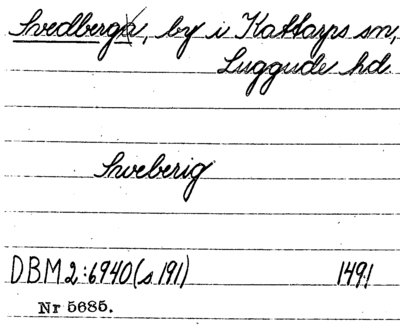 Svedberga, by i Kattarps sn,
Luggude hd.
Sweberig
DBM 2:6940 (s 191) 1491
Nr 5685.